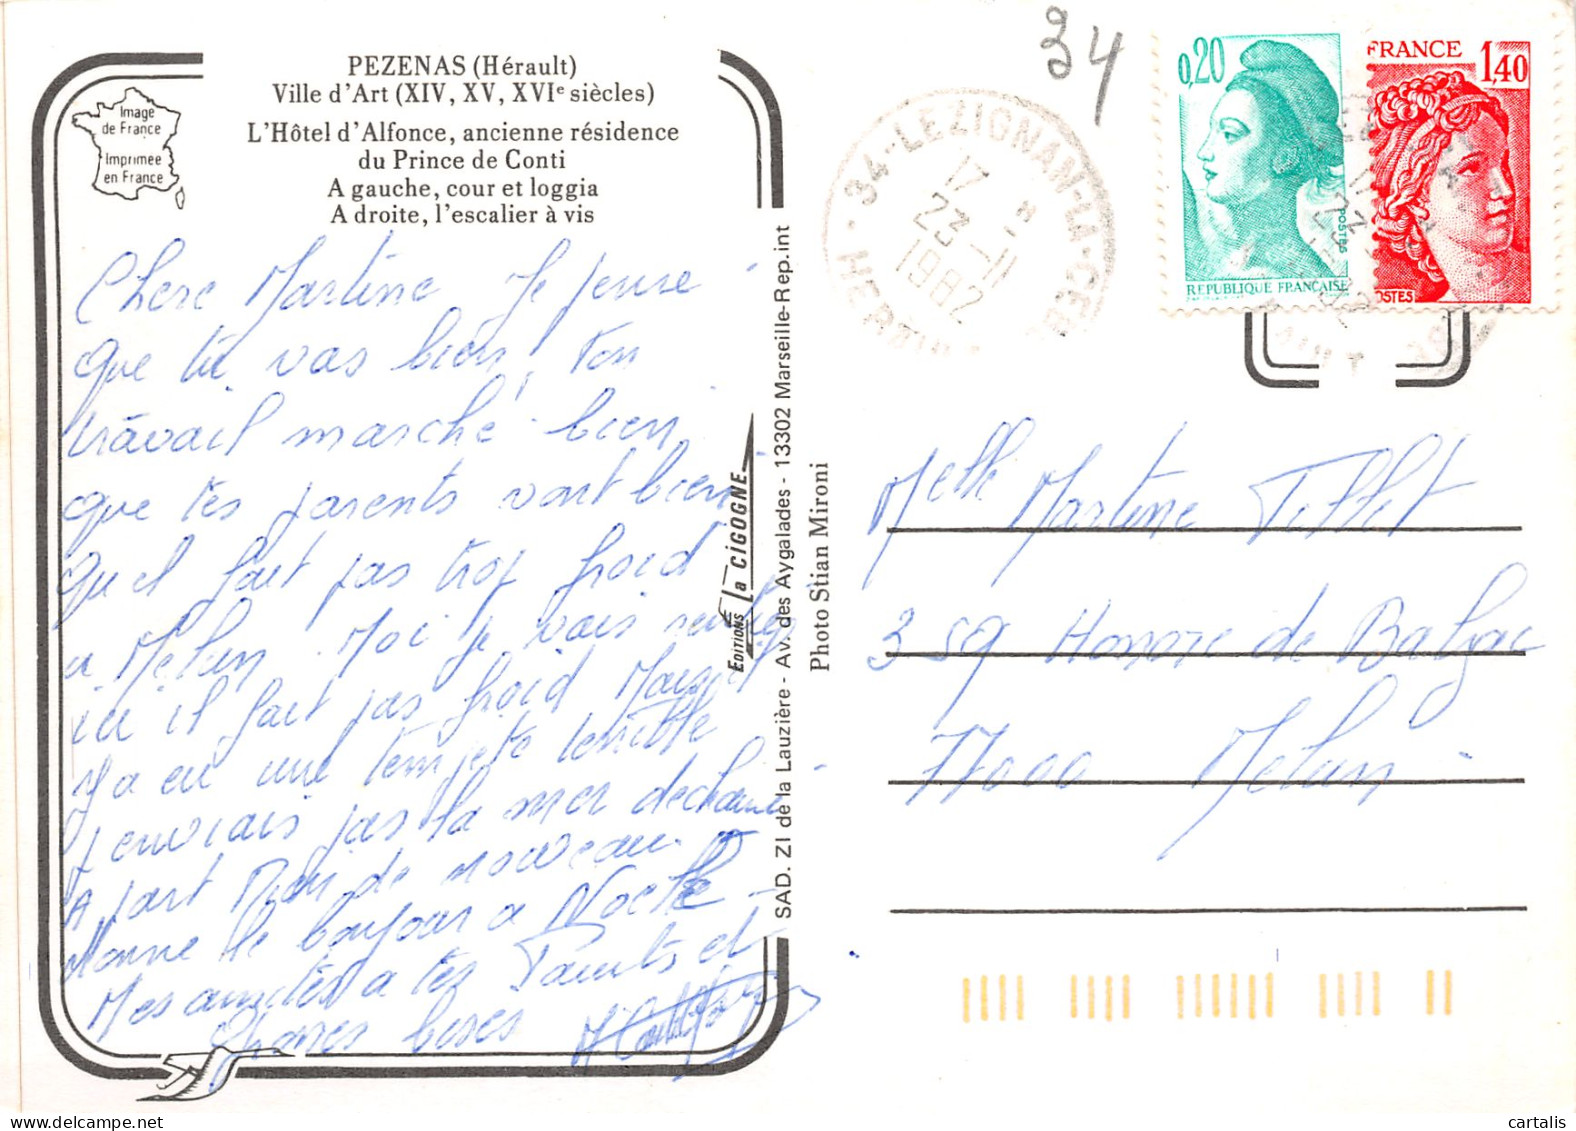 PEZENAS (Hérault)
Ville d'Art (XIV, XV, XVIe siècles)
L'Hôtel d'Alfonce, ancienne résidence
du Prince de Conti
A gauche, cour et loggia
A droite, l'escalier à vis
Image
de France
Imprimée
en France
Chere Martine Je pense
que tu vas bien, ton
travail marche bien
que tes parents vont bien
Qu'il fait pas trop froid
a Melun. Moi je vais
ici il fait pas froid
Y a eu une tempête terrible
j'enviais pas la mer
A part rien de nouveau
Donne le bonjour a Noelle
Mes amitiés a tes Parents et
Grosses bises
EDITIONS La CIGOGNE
SAD. ZI de la Lauzière - Av. des Aygalades - 13302 Marseille-Rep.int
Photo Stian Mironi
34
34-LEZIGNAN-LA-CEB
HERAUL
17 H
23-11
1982
0,20
POSTES
REPUBLIQUE FRANÇAISE
FRANCE
1,40
POSTES
Melle Martine
359 Honore de Balzac
77000 Melun
cartalis